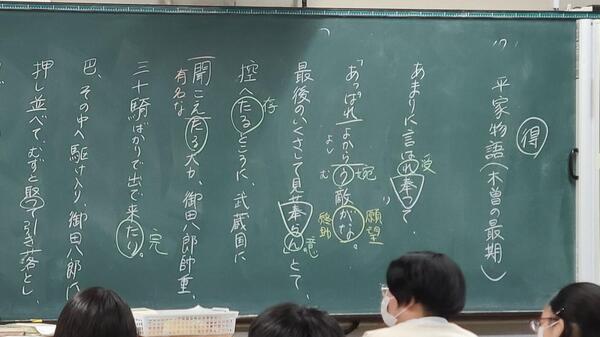 得
平家物語(木曽の最期)
あまりに言はれ奉って、
受
「あっぱれ、よからう敵がな。
よい
む
婉
願望
終助
最後のいくさして見せ奉らん」とて、
意
控へたるところに、武蔵国に
存
聞こえたる大力、御田八郎師重、
有名な
三十騎ばかりで出で来たり。
完
巴、その中へ駆け入り、御田八郎に
押し並べて、むずと取って引き落とし、